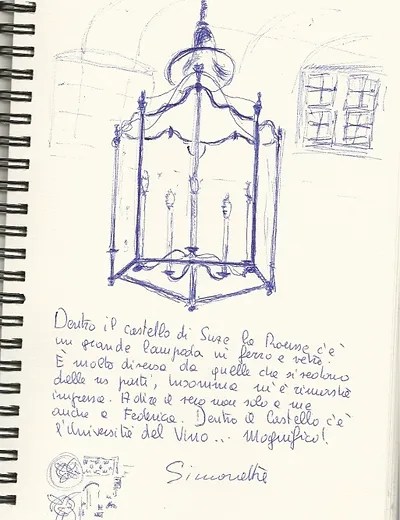 Dentro il castello di Suze la Rousse c'è
un grande lampada in ferro e vetri.
È molto diversa da quelle che si vedono
dalle ns parti, insomma m'è rimasta
impressa. A dire il vero non solo a me
anche a Federica. Dentro il Castello c'è
l'Università del Vino... Magnifico!
Simonetta